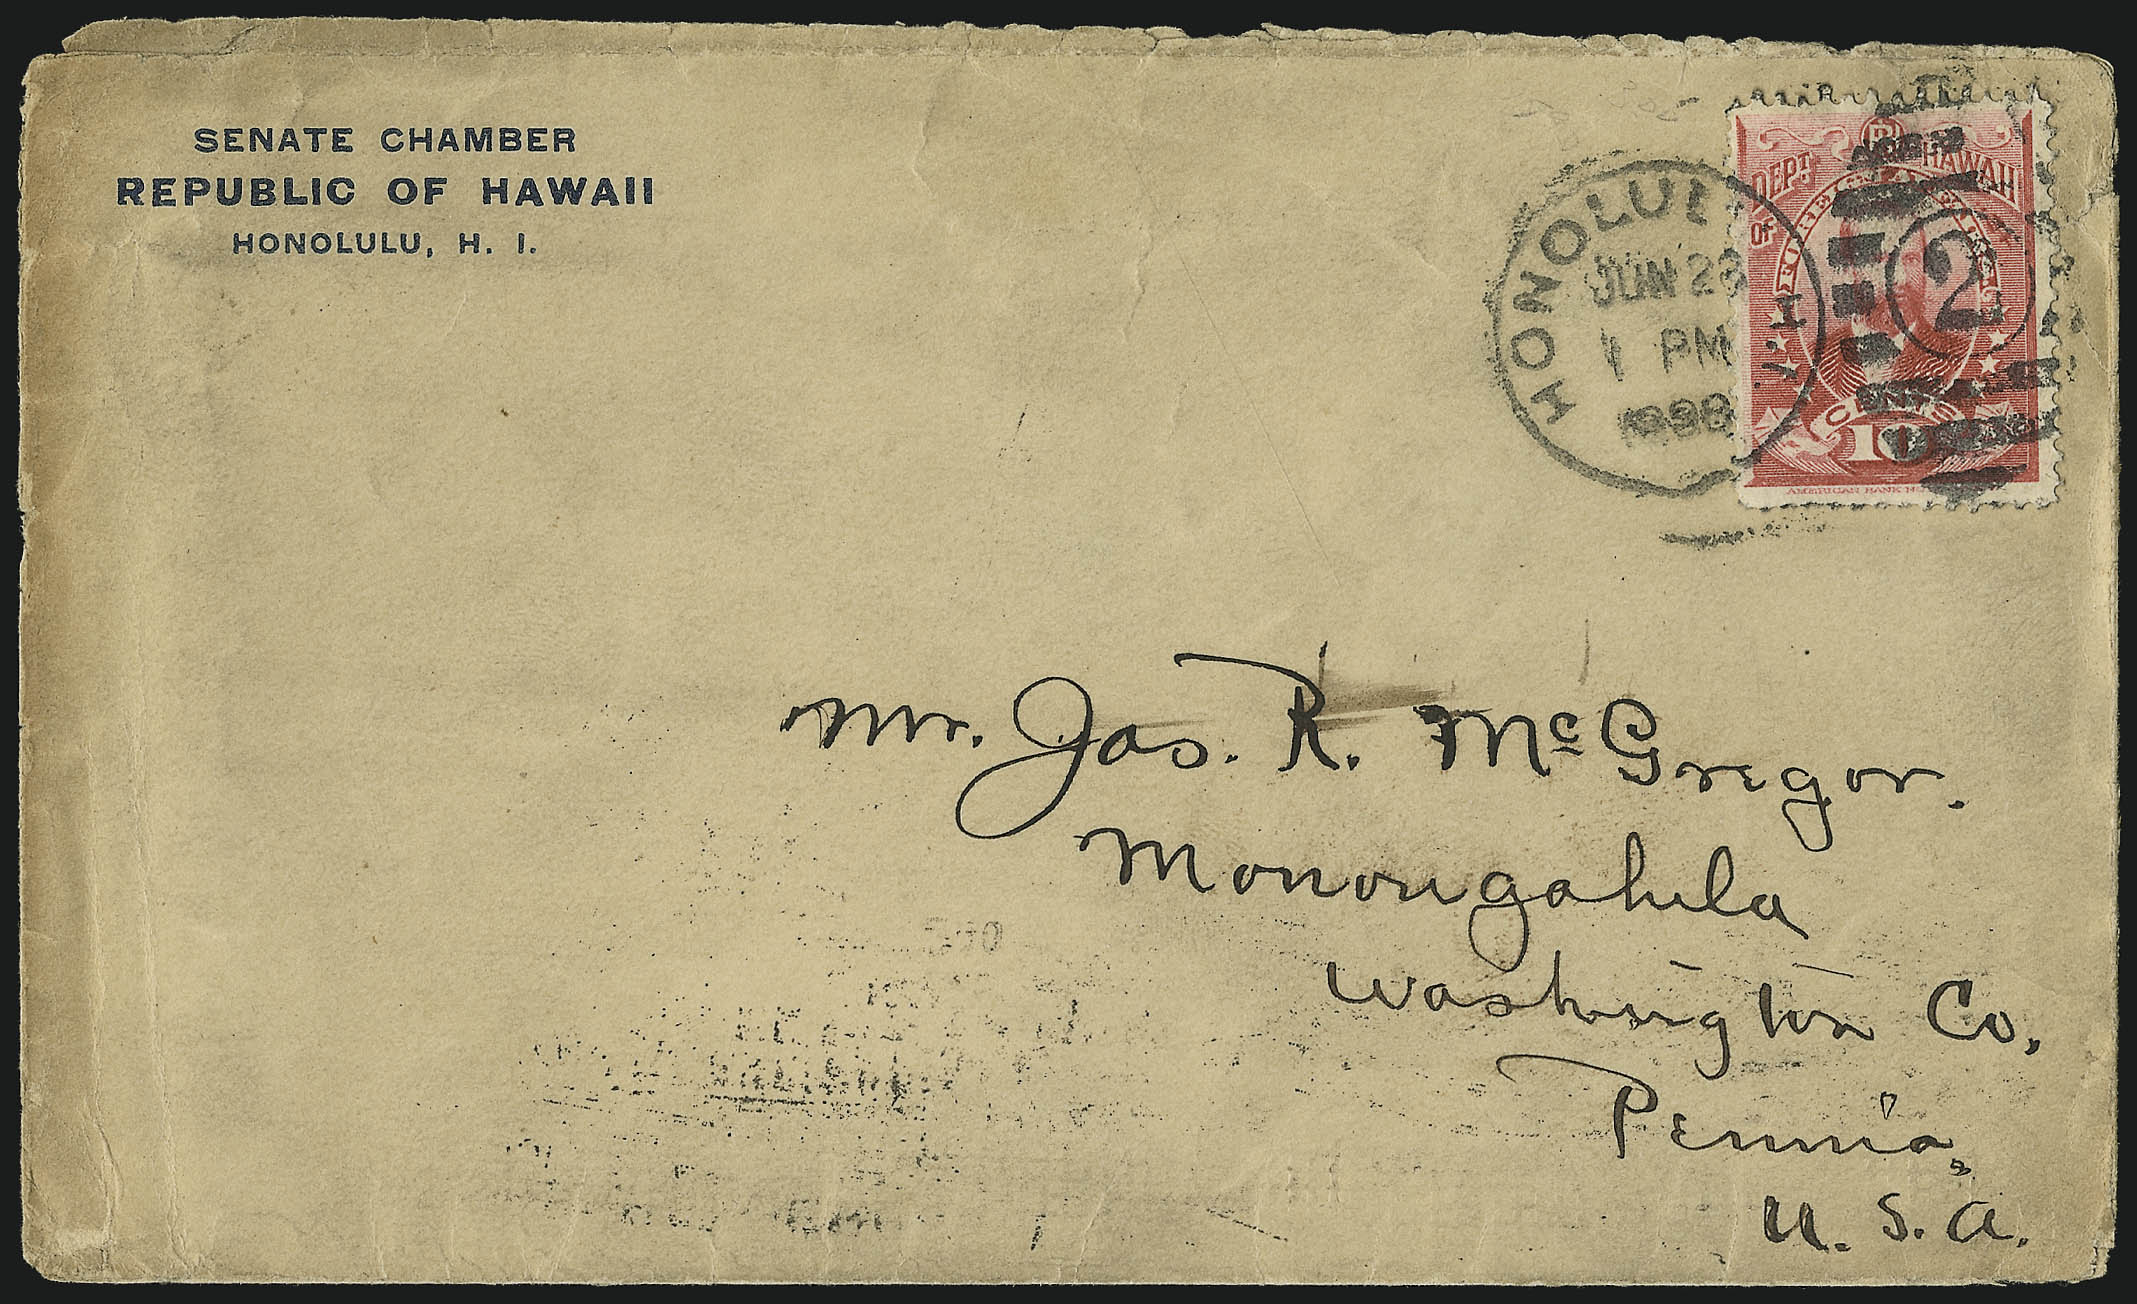 SENATE CHAMBER
REPUBLIC OF HAWAII
HONOLULU, H. I.
HONOLULU H. I.
JUN 28
1 PM
1898
2
DEPT. OF FOREIGN AFFAIRS HAWAII
CENTS
10
AMERICAN BANK
Mr. Jas. R. McGregor.
Monongahela
Washington Co.
Penn'a,
U. S. A.